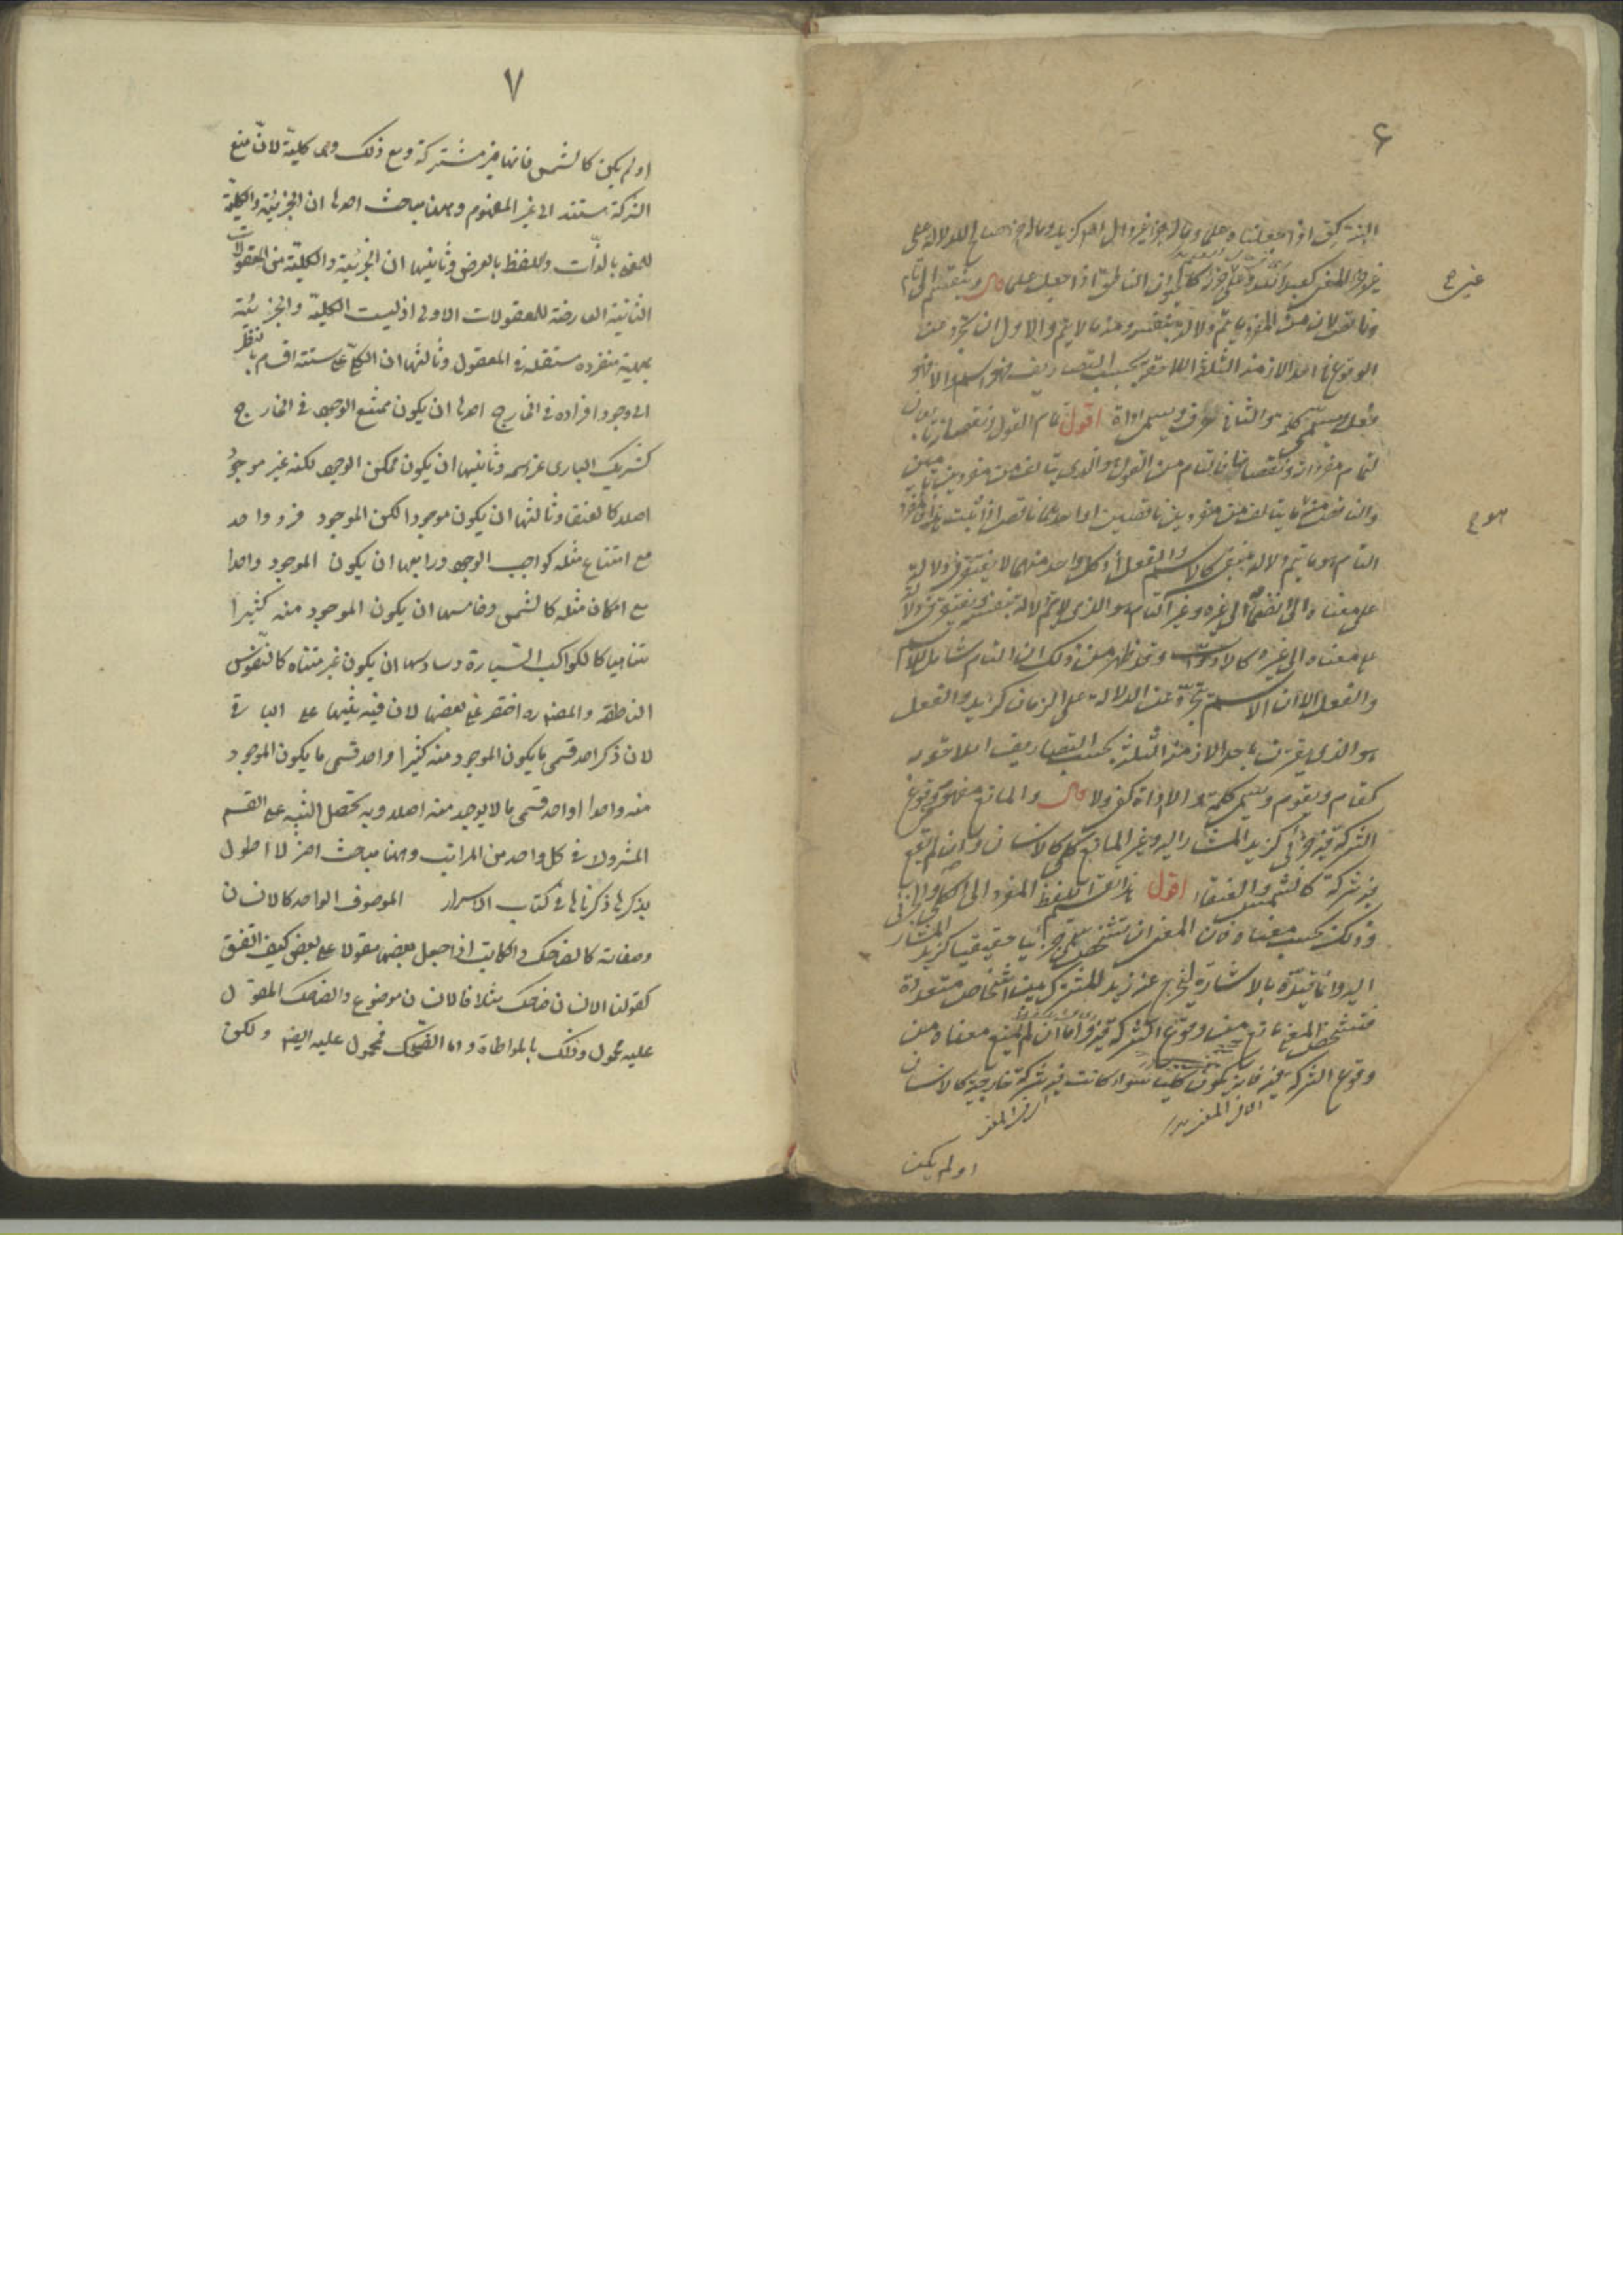 ٦
البتة كق اذا جعلناه علما وماله جزء غير دال
غير ح
وناقص لان من المفرد ما يتم دلالته بنفسه ومنه ما لا يتم والاول ان تجرد عن
الوقوع في احد الازمنة الثلثة اللاحقة بحسب التصاريف فهو اسم والا فهو
فعل ويسمى كلمة والثاني حرف ويسمى اداة اقول تمام القول ونقصانه تابعان
لتمام مفرداته ونقصانها فالتام من القول هو الذي يتالف من مفردين تامين
والناقص منه ما يتالف من مفردين ناقصين او احدهما ناقص اذا ثبت هذا فالمفرد
هو ح
التام هو ما يتم دلالته بنفسه كالاسم والفعل اذ كل واحد منهما لا يفتقر في دلالته
على معناه الى انضمام الى غيره وغير التام هو الذي لا يتم دلالته بنفسه ويفتقر في دلالته
على معناه الى غيره كالادوات وقد ظهر من ذلك ان التام شامل للاسم
والفعل الا ان الاسم تجرد عن الدلالة على الزمان كزيد والفعل
هو الذي يقترن باحد الازمنة الثلثة بحسب التصاريف اللاحقة به
كقام ويقوم ويسمى كلمة والاداة كفى ولا قال والمانع مفهومه وقوع
الشركة فيه جزئي كزيد المشار اليه وغير المانع كلي كالانسان وان لم تقع
فيه شركة كالشمس والعنقاء اقول هذا تقسيم اللفظ المفرد الى الكلي والجزئي
وذلك بحسب معناه فان المعنى ان تشخص سمي جزئيا حقيقيا كزيد المشار
اليه وانما قيده بالاشارة ليخرج عنه زيد المشترك بين اشخاص متعددة
فتشخص المعنى مانع من وقوع الشركة فيه واما ان لم يمنع معناه من
وقوع الشركة فيه فانه يكون كليا سواء كانت فيه شركة خارجية كالانسان
او لم يكن
٧
او لم يكن كالشمس فانها غير مشتركة ومع ذلك وهى كلية لانّ منع
الشركة مستند الى غير المفهوم وههنا مباحث احدها ان الجزئية والكلية
للمعنى بالذّات وللفظ بالعرض وثانيها ان الجزئية والكلية من المعقولات
الثانية العارضة للمعقولات الاولى اذ ليست الكلية والجزئية
بمهية منفردة مستقلة في المعقول وثالثها ان الكلّي على ستة اقسام بالنظر
الى وجود افراده في الخارج احدها ان يكون ممتنع الوجود في الخارج
كشريك البارى عز اسمه وثانيها ان يكون ممكن الوجود لكنه غير موجود
اصلا كالعنقا وثالثها ان يكون موجودا لكن الموجود فرد واحد
مع امتناع مثله كواجب الوجود ورابعها ان يكون الموجود واحدا
مع امكان مثله كالشمس وخامسها ان يكون الموجود منه كثيرا
متناهيا كالكواكب السّيارة وسادسها ان يكون غير متناه كالنّفوس
الناطقة والمصنف ره اختصر على بعضها لان فيه تنبيها على الباقى
لان ذكر احد قسمى ما يكون الموجود منه كثيرا واحد قسمى ما يكون الموجود
منه واحدا واحد قسمى ما لا يوجد منه اصلا وبه تحصل التنبيه على القسم
المتروك في كل واحد من المراتب وههنا مباحث اخر لا اطول
بذكرها ذكرناها في كتاب الاسرار الموصوف الواحد كالانسان
وصفاته كالضاحك والكاتب اذا جعل بعضها مقولا على بعض كيف اتفق
كقولنا الانسان ضاحك مثلا فالانسان موضوع والضاحك المقول
عليه محمول وذلك بالمواطاة واما الضّحك فمحمول عليه ايضا ولكن